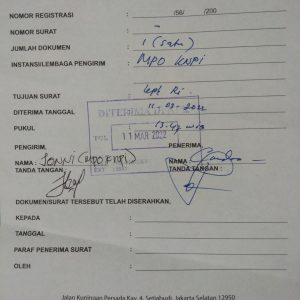 NOMOR REGISTRASI : /56/ /200
NOMOR SURAT : -
JUMLAH DOKUMEN : 1 (satu)
INSTANSI/LEMBAGA PENGIRIM : MPO KNPI
TUJUAN SURAT : Kpk RI.
DITERIMA TANGGAL : 11-03-2022
PUKUL : WIB
DITERIMA
TGL 11 MAR 2022
PENGIRIM, PENERIMA,
NAMA : JONNI (MPO KNPI) NAMA :
TANDA TANGAN : TANDA TANGAN :
DOKUMEN/SURAT TERSEBUT TELAH DISERAHKAN,
KEPADA :
TANGGAL :
PARAF PENERIMA SURAT :
OLEH :
Jalan Kuningan Persada Kav. 4, Setiabudi, Jakarta Selatan 12950